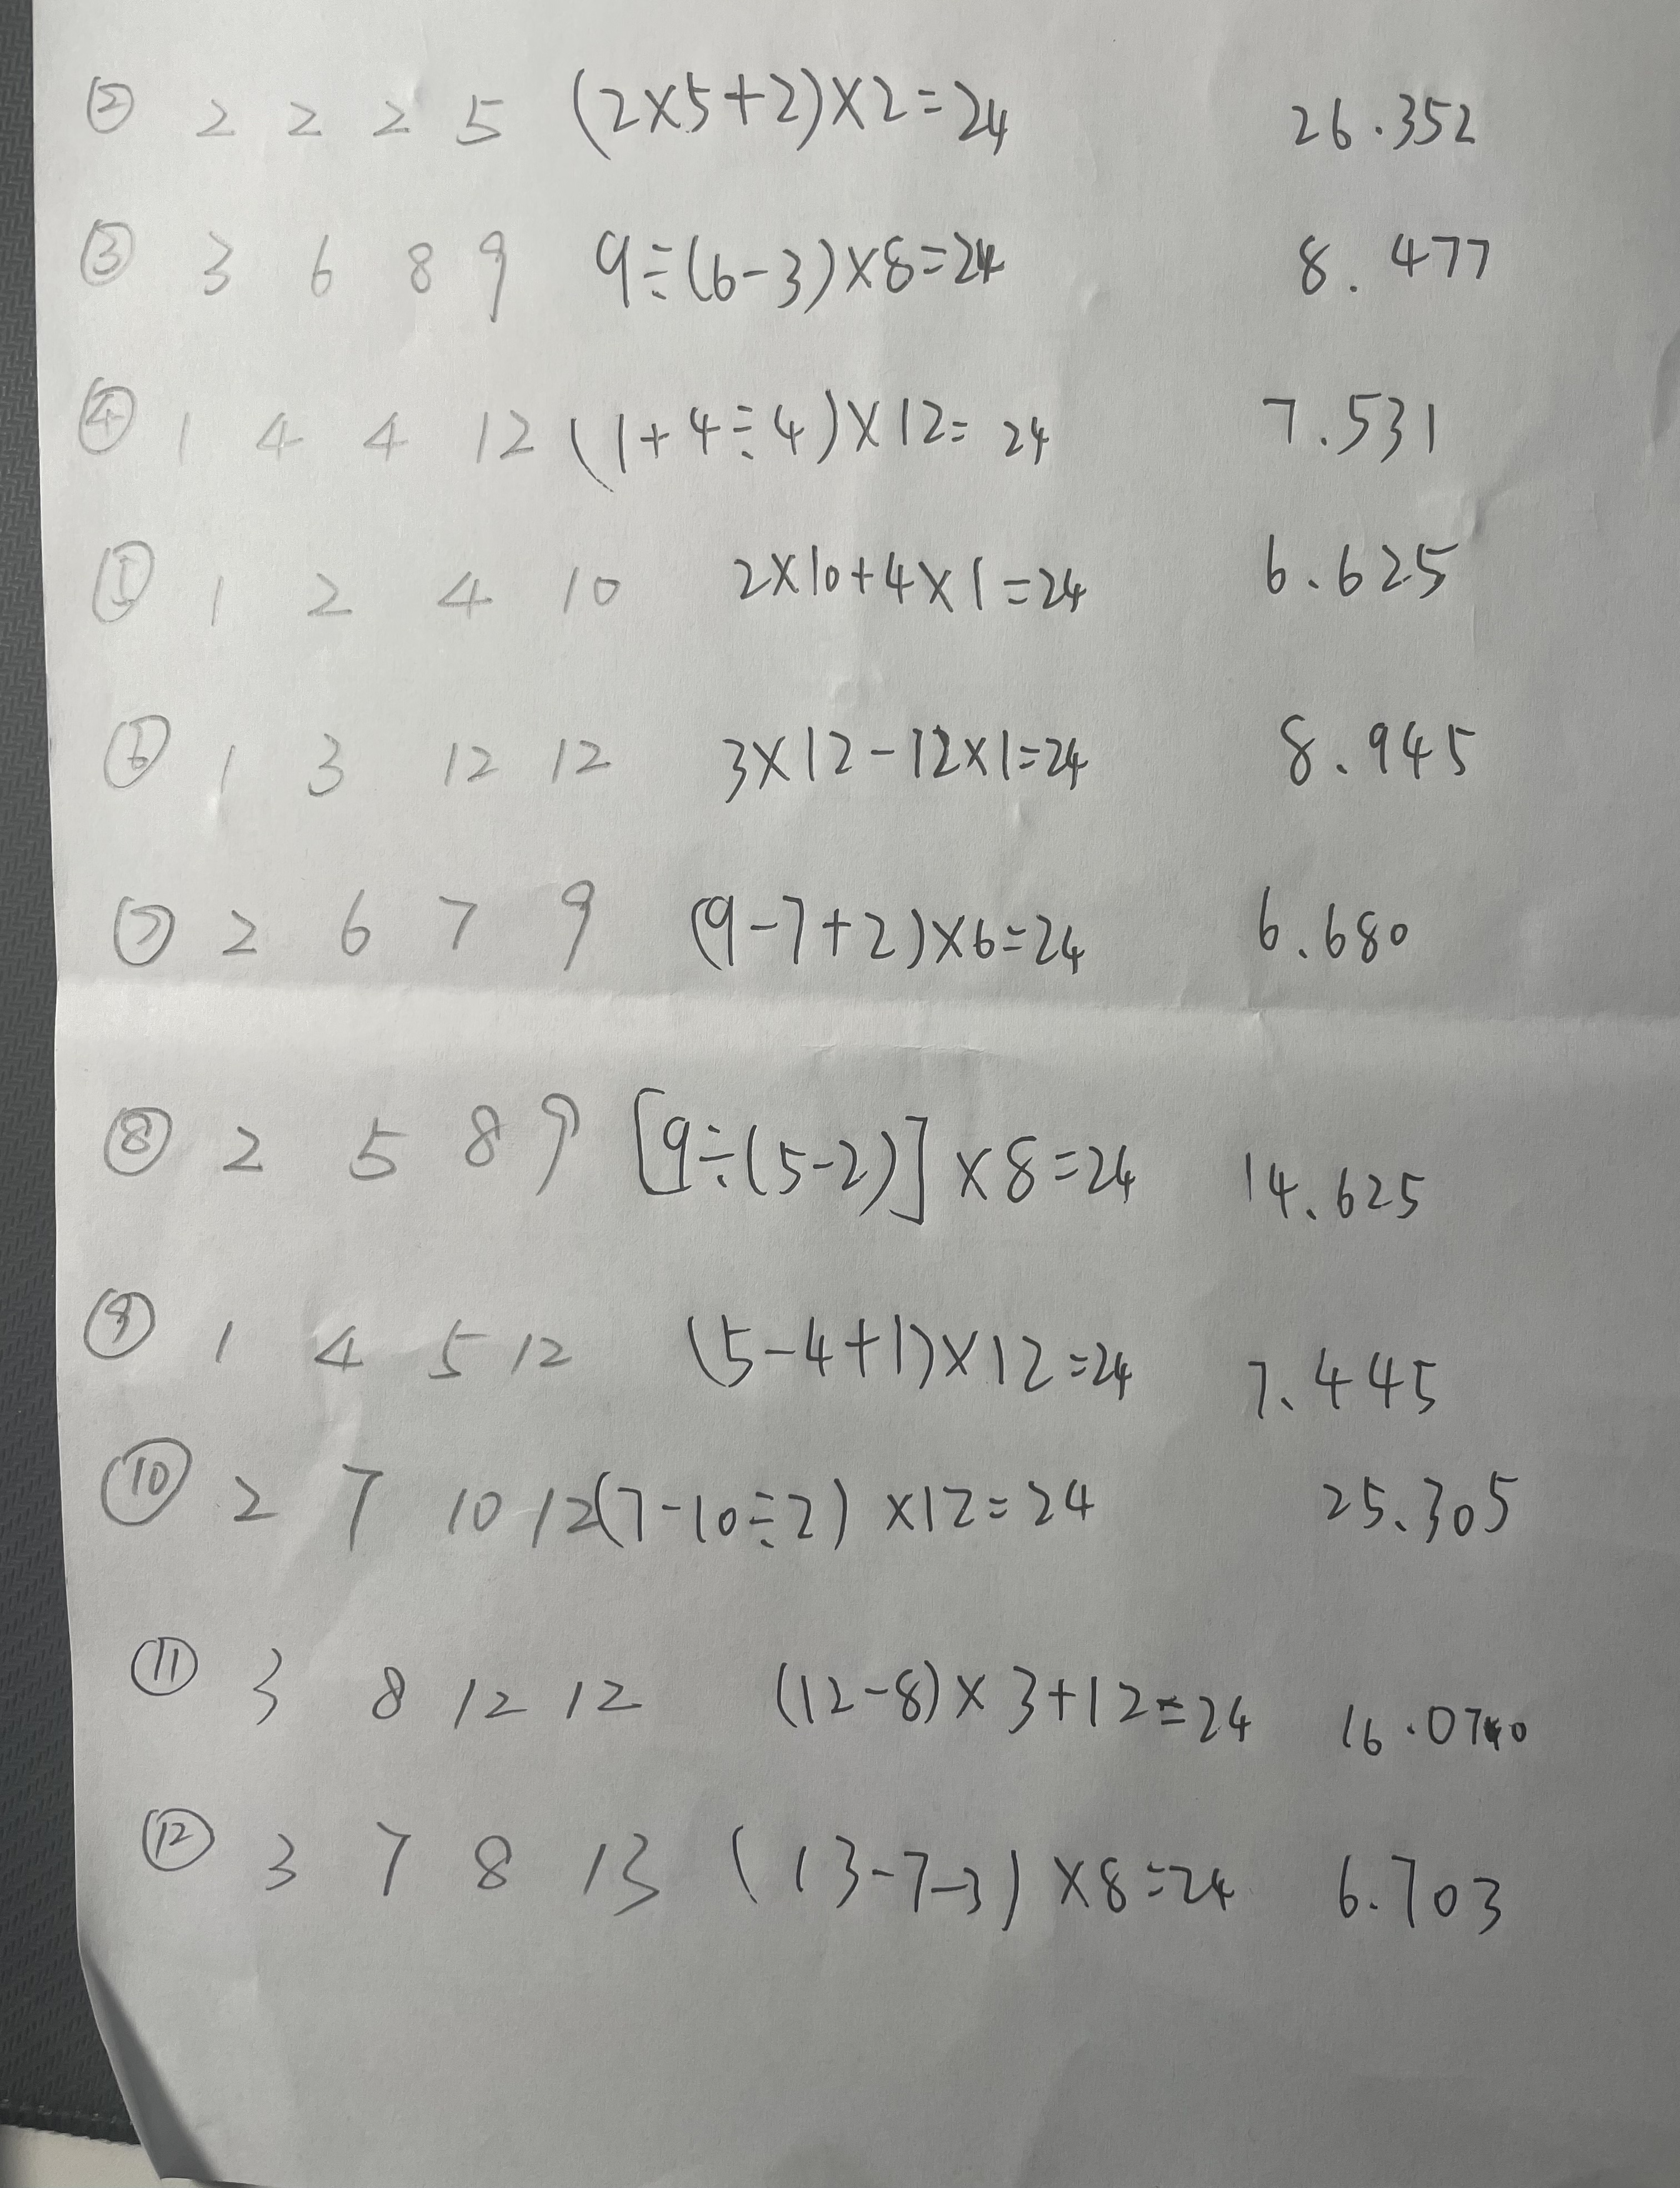 ② 2 2 2 5 (2×5+2)×2=24 26.352
③ 3 6 8 9 9÷(6-3)×8=24 8.477
④ 1 4 4 12 (1+4÷4)×12=24 7.531
⑤ 1 2 4 10 2×10+4×1=24 6.625
⑥ 1 3 12 12 3×12-12×1=24 8.945
⑦ 2 6 7 9 (9-7+2)×6=24 6.680
⑧ 2 5 8 9 [9÷(5-2)]×8=24 14.625
⑨ 1 4 5 12 (5-4+1)×12=24 7.445
⑩ 2 7 10 12 (7-10÷2)×12=24 25.305
⑪ 3 8 12 12 (12-8)×3+12=24
⑫ 3 7 8 13 (13-7-3)×8=24 6.703